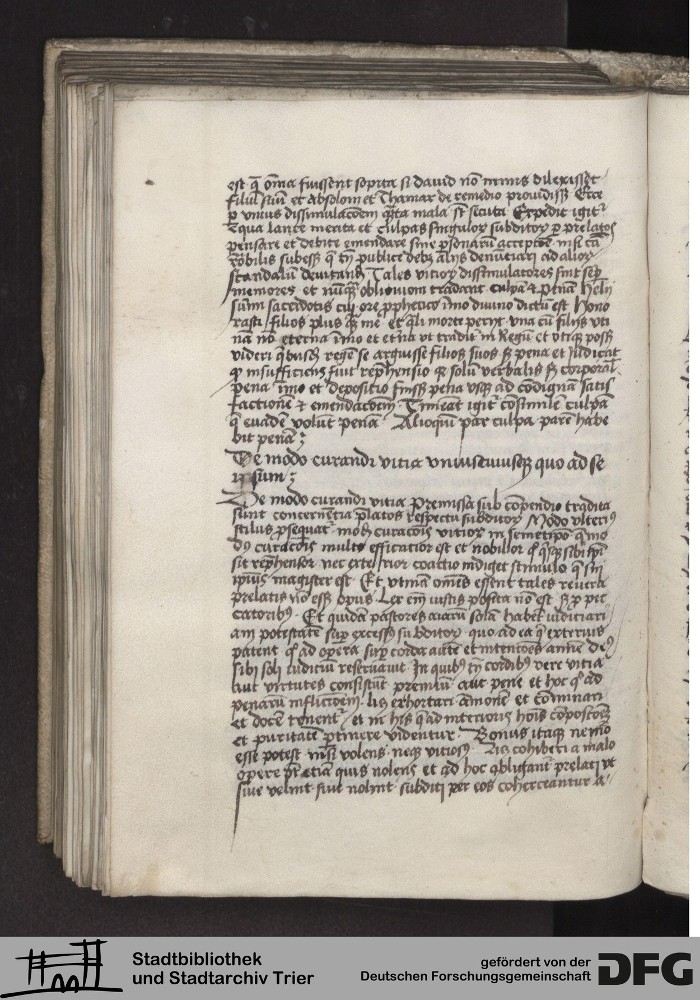 est q̄ om̄ia fuissent sopita si dauid nō nimis dilexisset
filiū suū et Absolom et Thamar de remedio prouidiss; Ecce
ꝑ vnius dissimulac̄oem q̄ta mala st̄ secuta Expedit igit᷑
equa lance merita et culpas singulor̄ subditor̄ ꝑ prelatos
pensare et debite emendare sine ꝑsonarū accepc̄oe nisi cū
subess; q̄ tn̄ publice debz̄ alijs denūciari ad alior̄
scandalū deuitandū Tales vitior̄ dissimulatores sint semꝑ
memores et nūqȝ obliuioni tradant culpā et penā Hely
sūmi sacerdotis cui ore ꝓphetico īmo diuino dictū est Hono
rasti filios plus qȝ me et q̄li morte perijt vna cū filijs
nā nō eterna īmo et et̄na vt tradit᷑ in Regū et vtiqȝ poss;
videri q̄busdā regē se arguisse filios suos sȝ pena et iudicat᷑
ꝙ insufficiens fuit rep̄hensio qȝ solū verbalis sȝ corporal᷑
pena īmo et depositio fuiss; pena vsqȝ ad condignā satis
factionē et emendac̄oem Timeāt igit᷑ cōsimilē culpā
q̄ euadē volūt penā Alioquin par culpa parē habe
bit penā ;
De modo curandi vitia vniuscuiusqȝ quo ad se
ipsum ;
De modo curandi vitia Premissa sub cōpendio tradita
sunt concernentia p̄latos respectu subditor̄ Modo vlteriꝰ
stilus ꝓsequat᷑ modū curac̄ois vitior̄ in semetipō q̄ mo
dꝰ curac̄ois multo efficatior est et nobilior qꝰ q̄sqȝ sibiip̄i
sit rep̄hensor nec exteriior coactio indiget stimulo q̄ sui
ipsius magister est Et vtinā om̄es essent tales reuera
prelatis nō ess; opus Lex em̄ iustis posita nō est sȝ ꝓ pec
catoribꝰ Et quidā pastores aīarū solā habēt iudiciari
am potestatē suꝑ excessꝰ subditor̄ quo ad ea q̄ exteriꝰ
patent qꝰ ad opera suꝑ corda autē et intenc̄oes anime deꝰ
sibi soli iudiciū reseruauit In quibꝰ tn̄ cordibꝰ vere vitia
siue virtutes consistūt premiū aut pene et hoc qꝰ ad
penarū inflicc̄oem lis exhortari amonē et cōminari
et docē tenent᷑ et in his q̄ ad interioris hoīs cōposic̄oeȝ
et puritatē ꝑtinere videntur Bonus itaqȝ nemo
esse potest nisi volens neqȝ vitiosꝰ cohiberi a malo
opere pt̄ etiam quis nolens et ad hoc obligant᷑ prelati vt
siue velint siue nolint subditi per eos coherceantur a
Stadtbibliothek
und Stadtarchiv Trier
gefördert von der
Deutschen Forschungsgemeinschaft
DFG